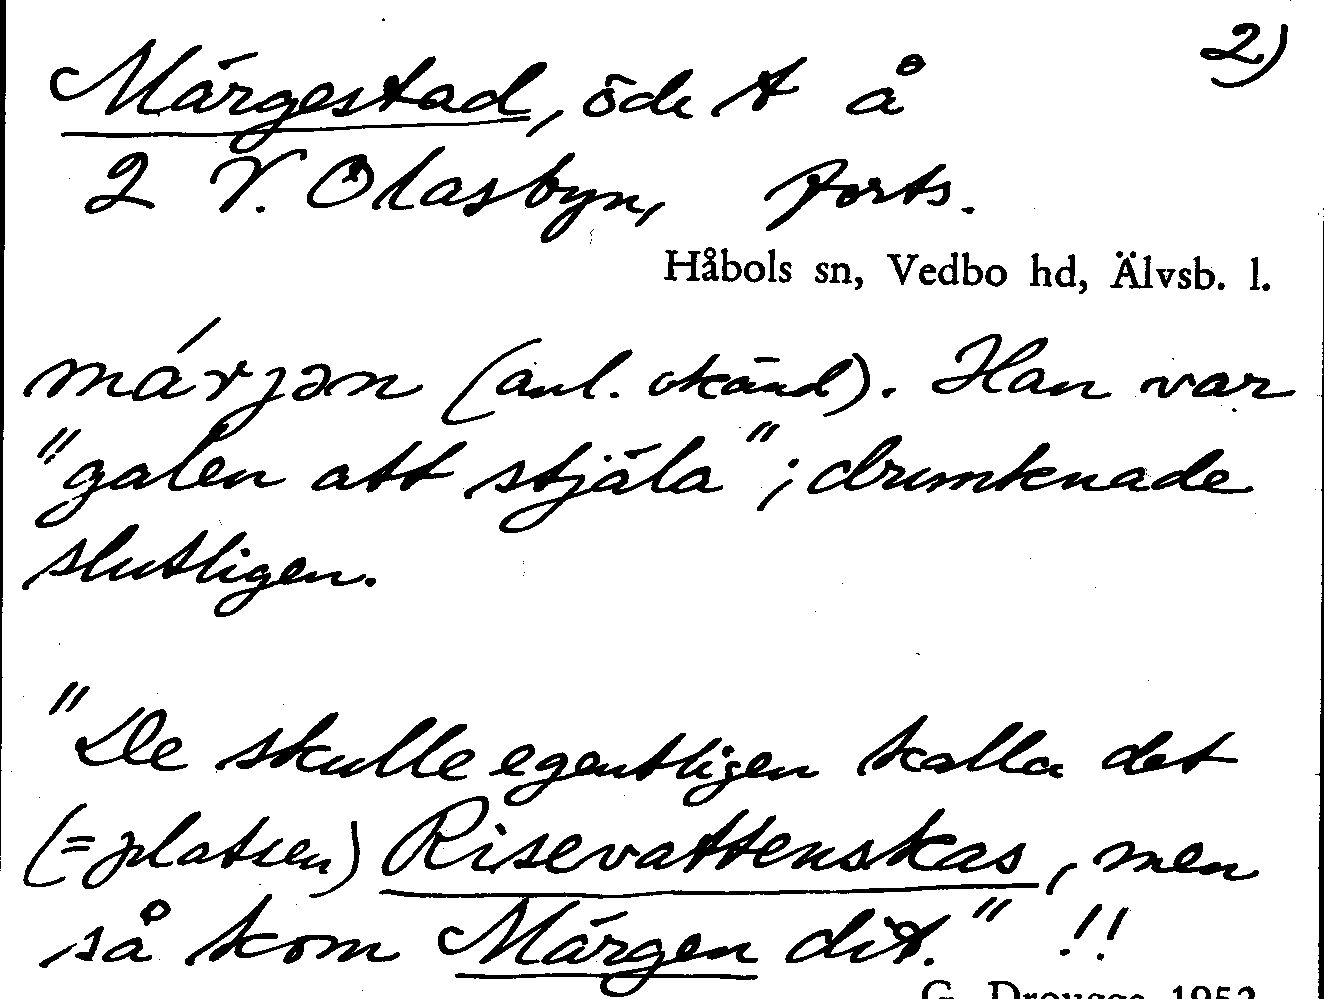 2)
Märgestad, öde t å
2 V. Olasbyn, forts.
Håbols sn, Vedbo hd, Älvsb. l.
márjən (anl. okänd). Han var
"galen att stjäla"; drunknade
slutligen.
"De skulle egentligen kalla det
(=platsen) Risevattenskas, men
så kom Märgen dit." !!
G. Drougge 1952